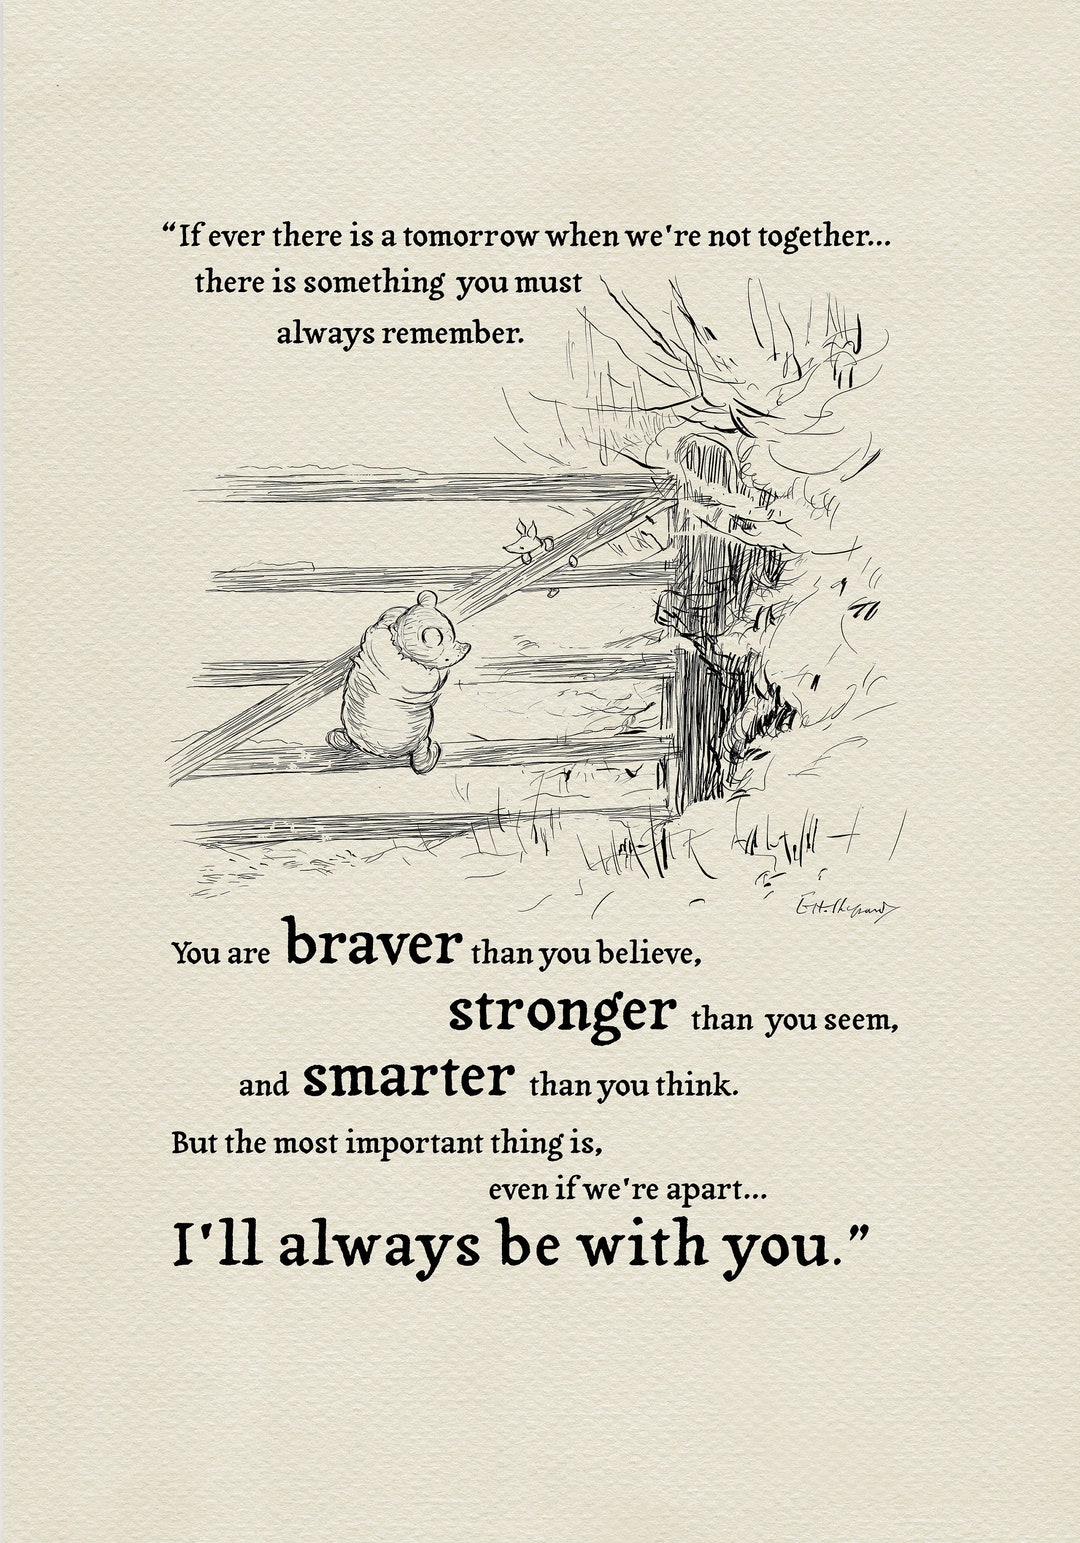 “If ever there is a tomorrow when we're not together...
there is something you must
always remember.
E.H. Shepard
You are braver than you believe,
stronger than you seem,
and smarter than you think.
But the most important thing is,
even if we're apart...
I'll always be with you.”